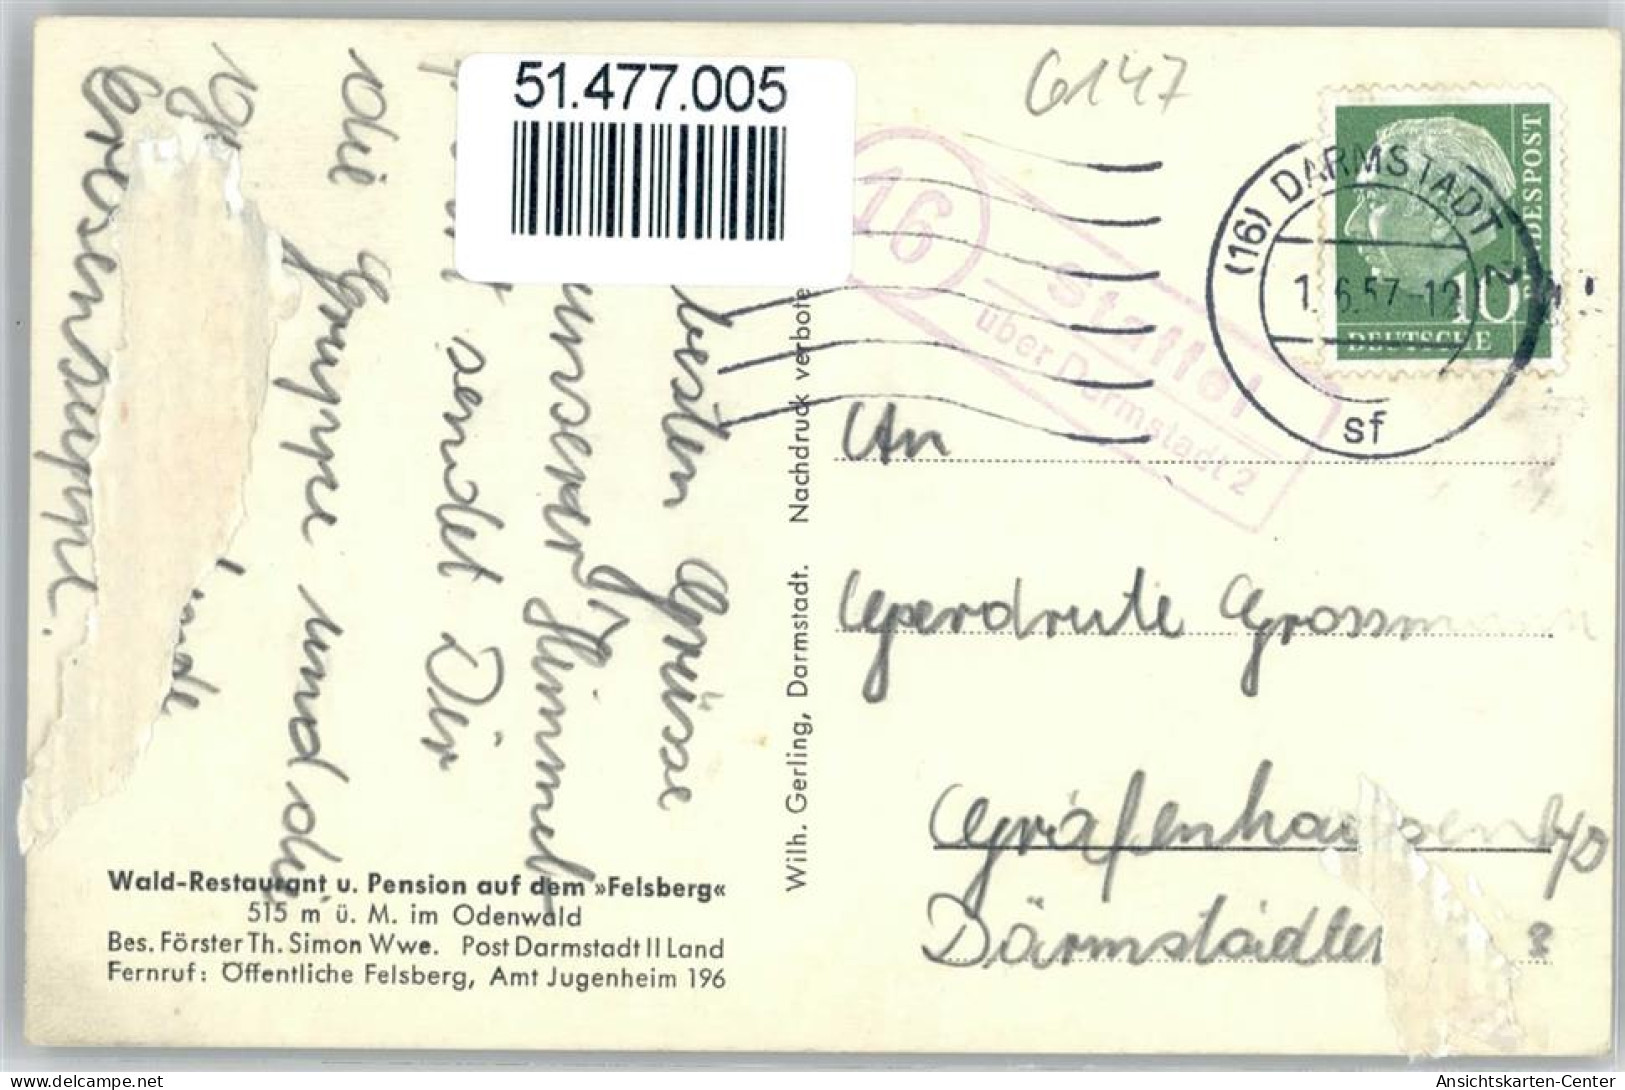 51.477.005
6147
16
Staffel
über Darmstadt 2
(16) DARMSTADT 2
1. 6.57-12
sf
DEUTSCHE
BUNDESPOST
10
besten Grüsse
unserer Himmel
sendet Dir
die Gruppe und die
Erbsensuppe.
An
Gerdrute Grossmann
Gräfenhausen b/D
Darmstädter
Wilh. Gerling, Darmstadt. Nachdruck verbote
Wald-Restaurant u. Pension auf dem »Felsberg«
515 m ü. M. im Odenwald
Bes. Förster Th. Simon Wwe. Post Darmstadt II Land
Fernruf: Öffentliche Felsberg, Amt Jugenheim 196
Ansichtskarten-Center